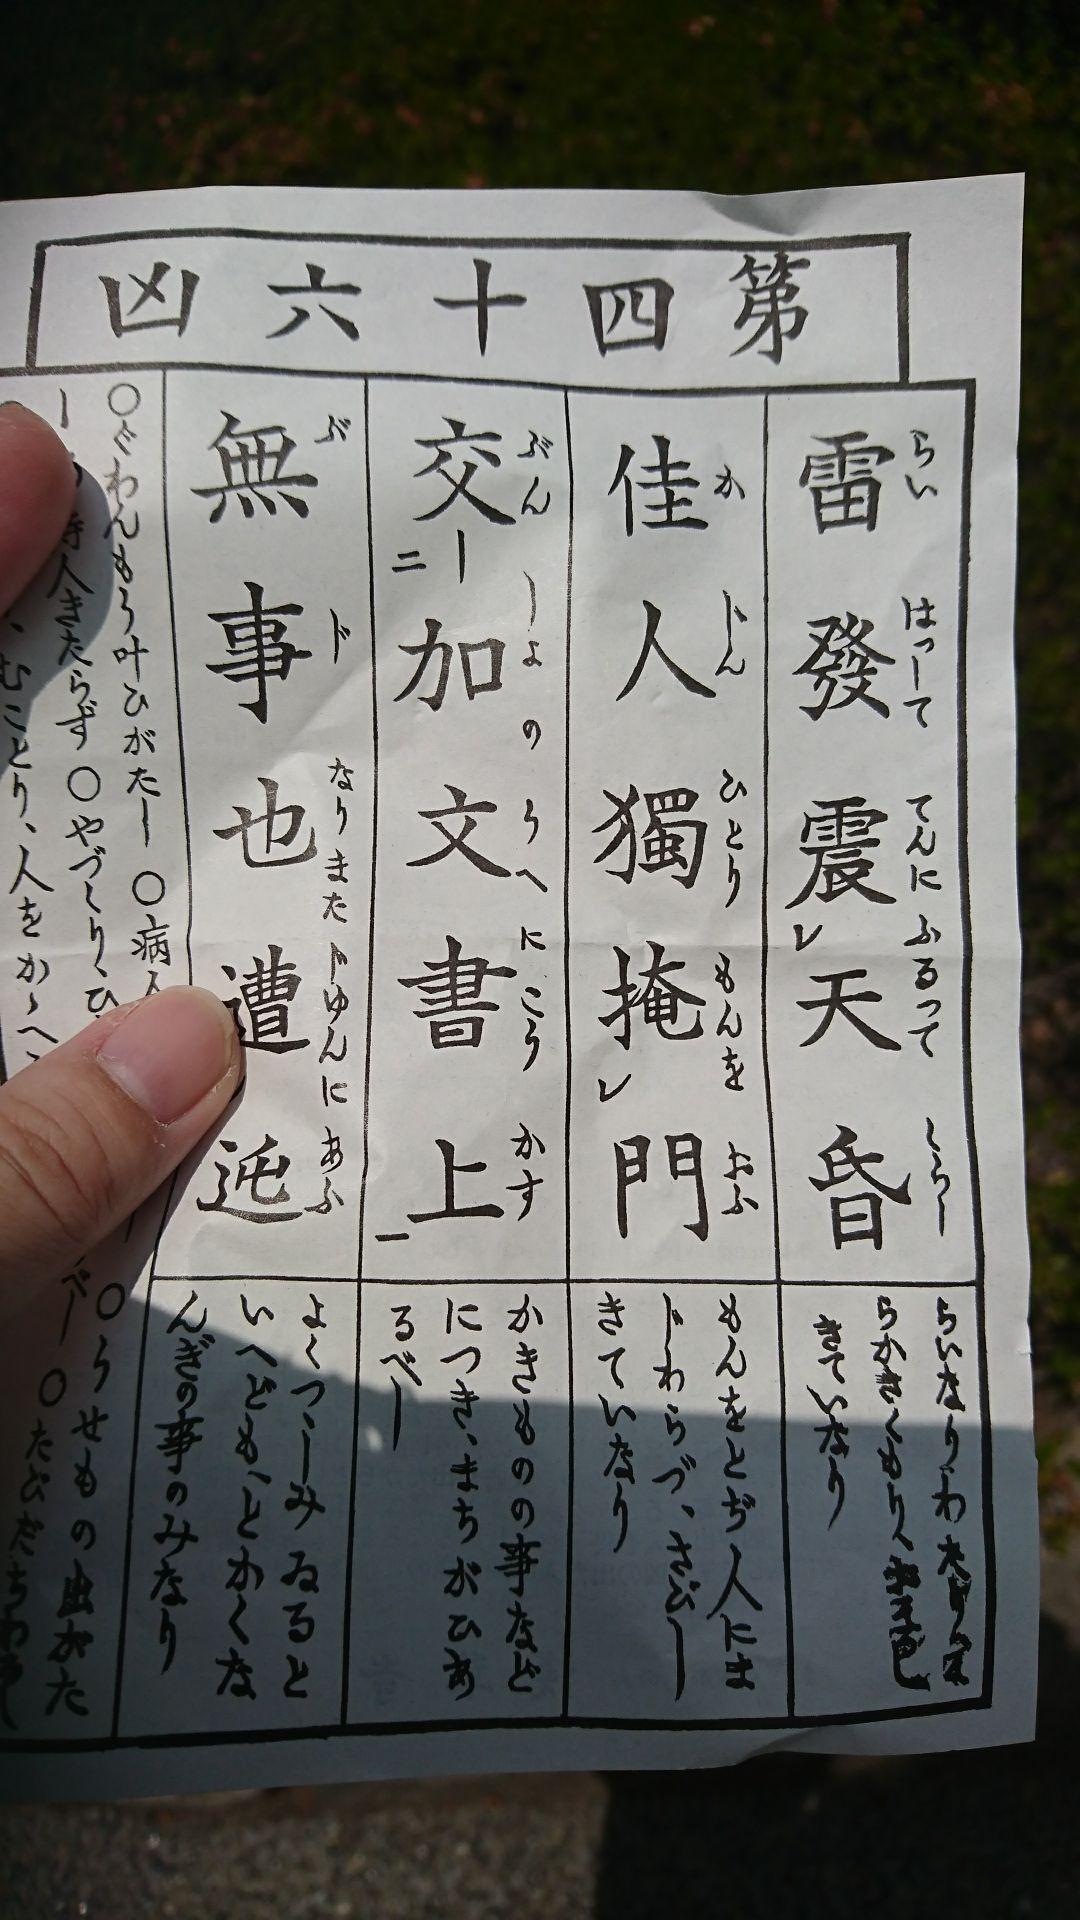 第四十六凶
雷發震レ天昏
らい はつして てんに ふるつて くらし
佳人獨掩レ門
か じん ひとり もんを おふ
交二加文書上一
ぶんしよのうへにこうかす
無事也遭迍
ぶじなりまたじゆんにあふ
らいなりわ
らかきくもり、
きていなり
もんをとぢ人にま
じわらづ、さびし
きていなり
かきものの事など
につき、まちがひあ
るべし
よくつゝしみゐると
いへども、とかくな
んぎの事のみなり
○ぐわんもう叶ひがたし ○病人
待人きたらず ○やづくり、ひ
○うせもの出がた
むことり、人をかゝへ
○たびだちわるし